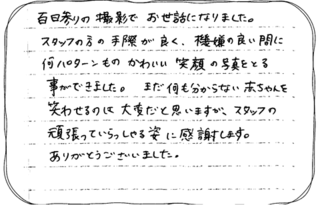 百日参りの撮影でお世話になりました。
スタッフの方の手際が良く、機嫌の良い間に
何パターンもの かわいい 笑顔の写真をとる
事ができました。 まだ何も分からない赤ちゃんを
笑わせるのは 大変だと思いますが、スタッフの
頑張っていらっしゃる姿に感謝します。
ありがとうございました。